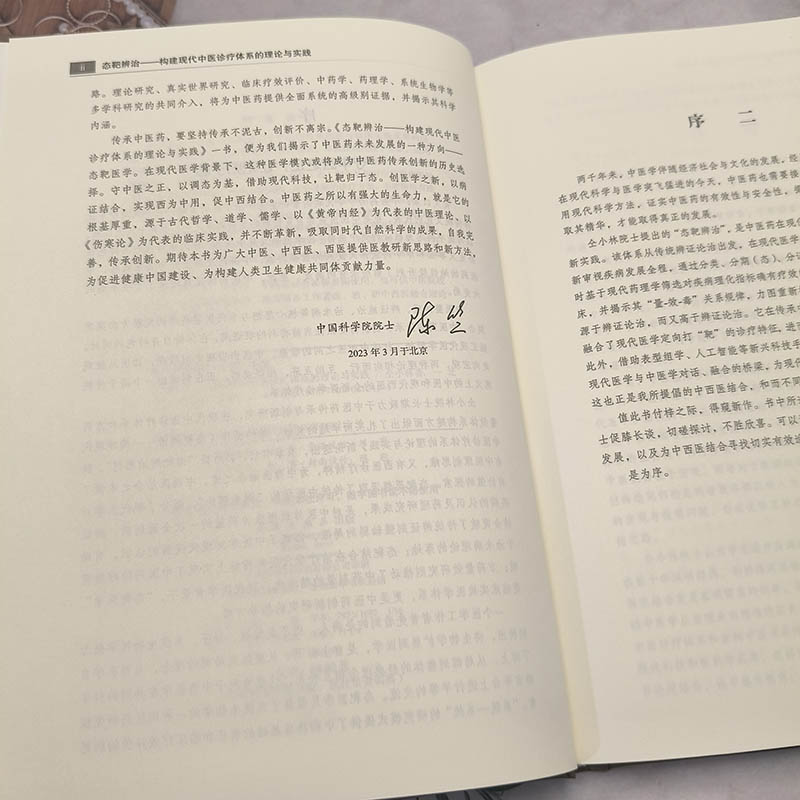 ii 态靶辨治——构建现代中医诊疗体系的理论与实践
路。理论研究、真实世界研究、临床疗效评价、中药学、药理学、系统生物学等
多学科研究的共同介入，将为中医药提供全面系统的高级别证据，并揭示其科学
内涵。
传承中医药，要坚持传承不泥古，创新不离宗。《态靶辨治——构建现代中医
诊疗体系的理论与实践》一书，便为我们揭示了中医药未来发展的一种方向——
态靶医学。在现代医学背景下，这种医学模式或将成为中医药传承创新的历史选
择。守中医之正，以调态为基，借助现代科技，让靶归于态。创医学之新，以病
证结合，实现西为中用，促中西结合。中医药之所以有强大的生命力，就是它的
根基厚重，源于古代哲学、道学、儒学、以《黄帝内经》为代表的中医理论、以
《伤寒论》为代表的临床实践，并不断革新，吸取同时代自然科学的成果，自我完
善，传承创新。期待本书为广大中医、中西医、西医提供医教研新思路和新方法，
为促进健康中国建设、为构建人类卫生健康共同体贡献力量。
中国科学院院士 陈竺
2023 年 3 月于北京
序 二
两千年来，中医学伴随经济社会与文化的发展，经
在现代科学与医学突飞猛进的今天，中医药也需要接
用现代科学方法，证实中医药的有效性与安全性，
取其精华，才能取得真正的发展。
仝小林院士提出的“态靶辨治”，是中医药在现代
新实践。该体系从传统辨证论治出发，在现代医学
新审视疾病发展全程，通过分类、分期（态）、分证
时基于现代药理学筛选对疾病理化指标确有疗效的
床，并揭示其“量-效-毒”关系规律，力图重新
源于辨证论治，而又高于辨证论治。它在传承中
融合了现代医学定向打“靶”的诊疗特征，进
此外，借助表型组学、人工智能等新兴科技手
现代医学与中医学对话、融合的桥梁，为中
这也正是我所提倡的中西医结合，和而不同
值此书付梓之际，得窥新作。书中所
士促膝长谈，切磋探讨，不胜欣喜。可以
发展，以及为中西医结合寻找切实有效途
是为序。